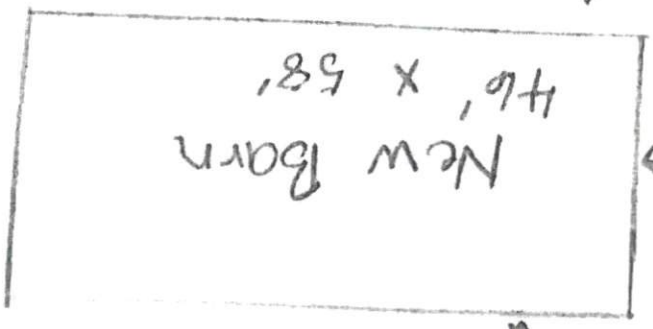 New Barn
46' x 58'